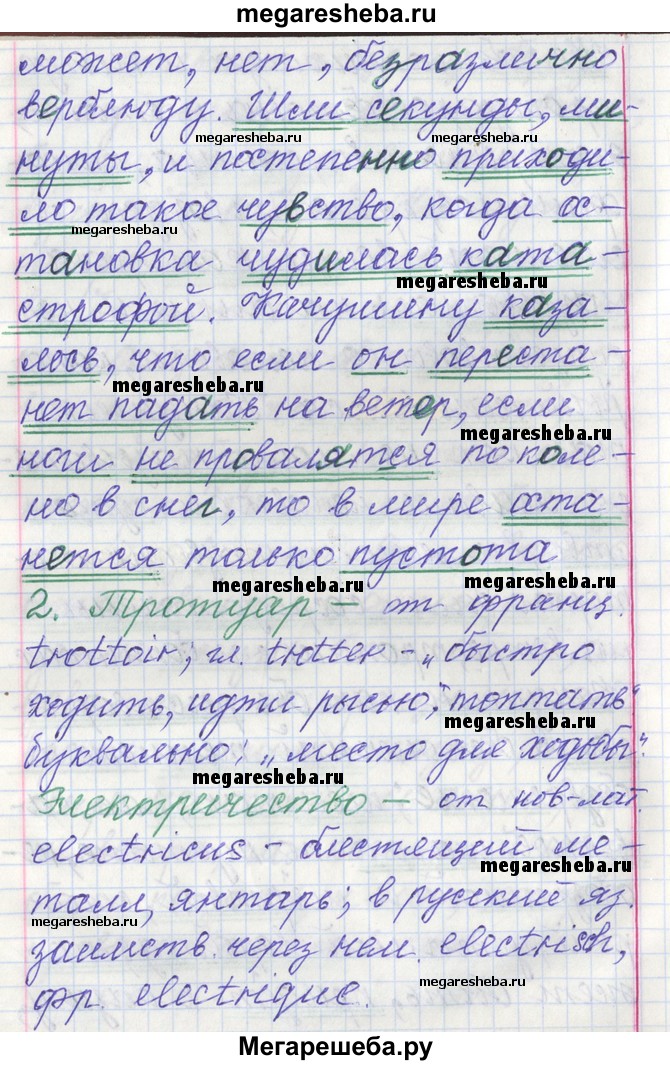 megaresheba.ru
может, нет, безразлично
верблюду. Шли секунды, ми-
megaresheba.ru megaresheba.ru
нуты, и постепенно приходи-
ло такое чувство, когда ос-
megaresheba.ru
тановка чудилась ката-
megaresheba.ru
строфой. Качушину каза-
лось, что если он переста-
megaresheba.ru
нет падать на ветер, если
megaresheba.ru
ноги не провалятся по коле-
но в снег, то в мире оста-
нется только пустота
megaresheba.ru megaresheba.ru
2. Тротуар – от франц.
trottoir; гл. trotter – „быстро
ходить, идти рысью", „топтать"
megaresheba.ru
буквально: „место для ходьбы".
megaresheba.ru
Электричество – от нов-лат.
electricus – блестящий ме-
megaresheba.ru
талл, янтарь; в русский яз.
megaresheba.ru
заимств. через нем. electrisch,
megaresheba.ru
фр. electrique.
Мегарешеба.ру